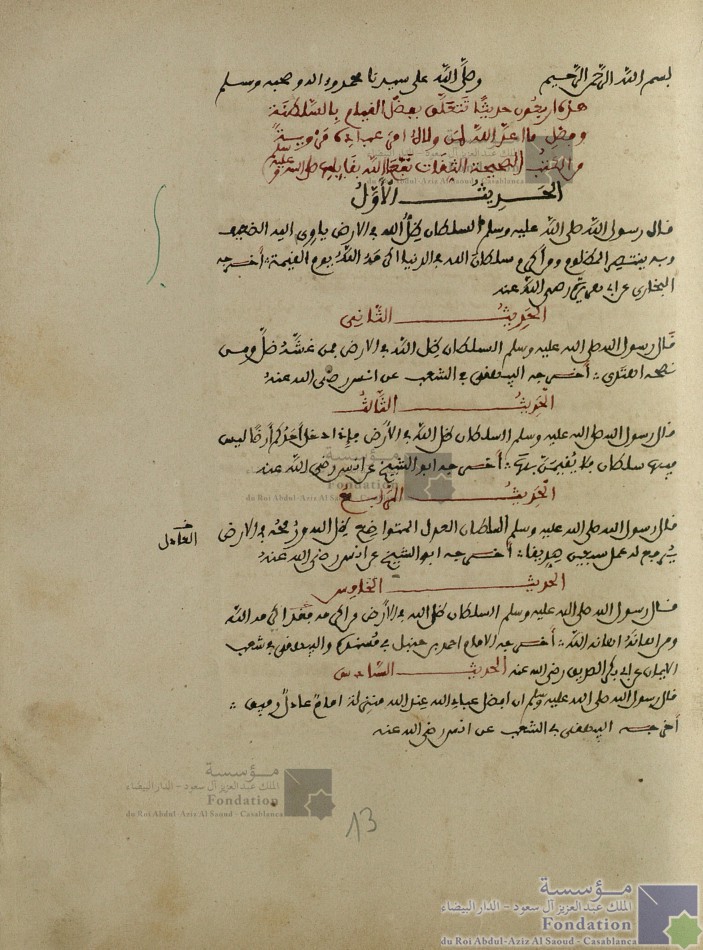 بسم الله الرحمن الرحيم وصلى الله على سيدنا محمد وءاله وصحبه وسلم
هذه اربعون حديثا تتعلق بفضل القيام بالسلطنة
وفضل ما اعد الله لمن ولاه امر عباده
من الصحيحة الثقات نفعنا الله صلى الله عليه وسلم
الحديث الأول
قال رسول الله صلى الله عليه وسلم السلطان ظل الله في الارض ياوي اليه الضعيف
وبه ينتصر المظلوم ومن اكرم سلطان الله في الدنيا اكرمه الله يوم القيمة أخرجه
البخاري عن ابي هريرة رضي الله عنه
الحديث الثاني
قال رسول الله صلى الله عليه وسلم السلطان ظل الله في الارض فمن غشه ضل ومن
نصحه اهتدى أخرجه البيهقي في الشعب عن انس رضي الله عنه
الحديث الثالث
قال رسول الله صلى الله عليه وسلم السلطان ظل الله في الأرض فإذا دخل أحدكم أرضا ليس
فيها سلطان فلا يقيمن بها أخرجه ابو الشيخ عن انس رضي الله عنه
الحديث الرابع
قال رسول الله صلى الله عليه وسلم السلطان العدل المتواضع ظل الله ورمحه في الارض
العادل
يرفع له عمل سبعين صديقا أخرجه ابو الشيخ عن انس رضي الله عنه
الحديث الخامس
قال رسول الله صلى الله عليه وسلم السلطان ظل الله في الأرض من اكرمه فقد اكرمه الله
ومن اهانه اهانه الله أخرجه الامام احمد بن حنبل في مسنده والبيهقي في شعب
الايمان عن ابي بكر الصديق رضي الله عنه الحديث السادس
قال رسول الله صلى الله عليه وسلم ان افضل عباد الله عند الله منزلة امام عادل رفيق
أخرجه البيهقي في الشعب عن انس رضي الله عنه
13
مؤسسة
الملك عبد العزيز آل سعود - الدار البيضاء
Fondation
du Roi Abdul-Aziz Al Saoud - Casablanca